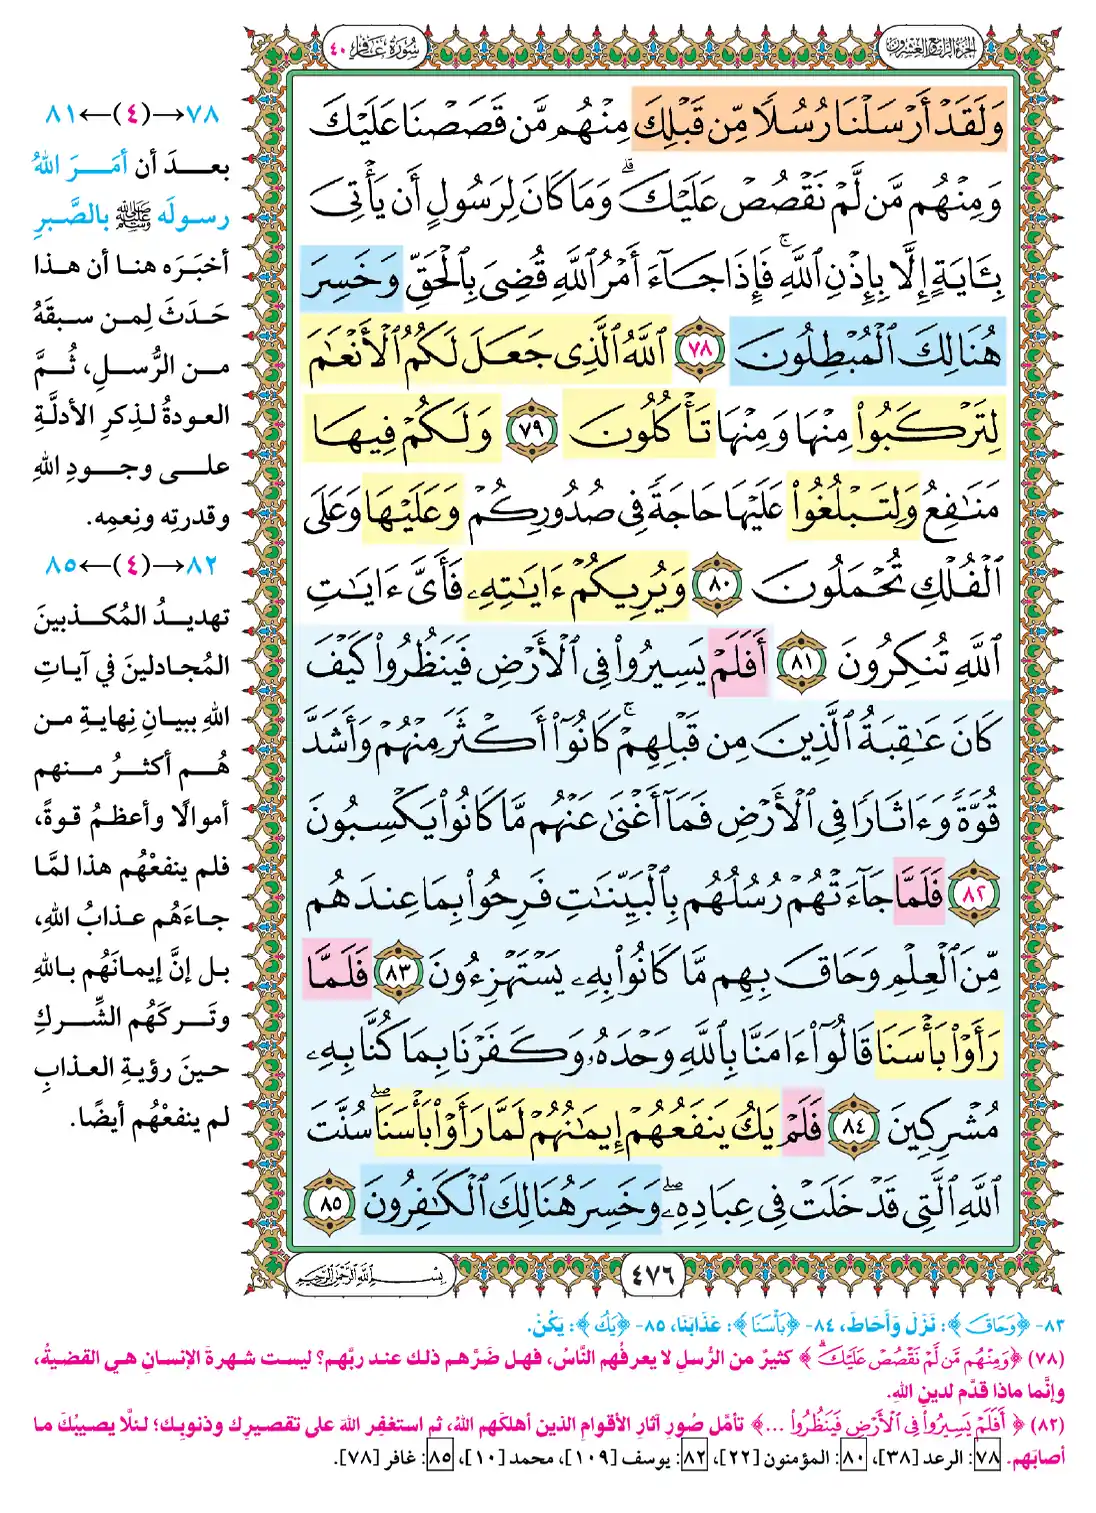 الجزء الرابع العشرون
سورة غافر ٤٠
وَلَقَدْ أَرْسَلْنَا رُسُلًا مِّن قَبْلِكَ مِنْهُم مَّن قَصَصْنَا عَلَيْكَ
وَمِنْهُم مَّن لَّمْ نَقْصُصْ عَلَيْكَ ۗ وَمَا كَانَ لِرَسُولٍ أَن يَأْتِىَ
بِـَٔايَةٍ إِلَّا بِإِذْنِ ٱللَّهِ ۚ فَإِذَا جَآءَ أَمْرُ ٱللَّهِ قُضِىَ بِٱلْحَقِّ وَخَسِرَ
هُنَالِكَ ٱلْمُبْطِلُونَ ٧٨ ٱللَّهُ ٱلَّذِى جَعَلَ لَكُمُ ٱلْأَنْعَٰمَ
لِتَرْكَبُوا۟ مِنْهَا وَمِنْهَا تَأْكُلُونَ ٧٩ وَلَكُمْ فِيهَا
مَنَٰفِعُ وَلِتَبْلُغُوا۟ عَلَيْهَا حَاجَةً فِى صُدُورِكُمْ وَعَلَيْهَا وَعَلَى
ٱلْفُلْكِ تُحْمَلُونَ ٨٠ وَيُرِيكُمْ ءَايَٰتِهِۦ فَأَىَّ ءَايَٰتِ
ٱللَّهِ تُنكِرُونَ ٨١ أَفَلَمْ يَسِيرُوا۟ فِى ٱلْأَرْضِ فَيَنظُرُوا۟ كَيْفَ
كَانَ عَٰقِبَةُ ٱلَّذِينَ مِن قَبْلِهِمْ ۚ كَانُوٓا۟ أَكْثَرَ مِنْهُمْ وَأَشَدَّ
قُوَّةً وَءَاثَارًا فِى ٱلْأَرْضِ فَمَآ أَغْنَىٰ عَنْهُم مَّا كَانُوا۟ يَكْسِبُونَ
٨٢ فَلَمَّا جَآءَتْهُمْ رُسُلُهُم بِٱلْبَيِّنَٰتِ فَرِحُوا۟ بِمَا عِندَهُم
مِّنَ ٱلْعِلْمِ وَحَاقَ بِهِم مَّا كَانُوا۟ بِهِۦ يَسْتَهْزِءُونَ ٨٣ فَلَمَّا
رَأَوْا۟ بَأْسَنَا قَالُوٓا۟ ءَامَنَّا بِٱللَّهِ وَحْدَهُۥ وَكَفَرْنَا بِمَا كُنَّا بِهِۦ
مُشْرِكِينَ ٨٤ فَلَمْ يَكُ يَنفَعُهُمْ إِيمَٰنُهُمْ لَمَّا رَأَوْا۟ بَأْسَنَا ۖ سُنَّتَ
ٱللَّهِ ٱلَّتِى قَدْ خَلَتْ فِى عِبَادِهِۦ ۖ وَخَسِرَ هُنَالِكَ ٱلْكَٰفِرُونَ ٨٥
٤٧٦
بسم الله الرحمن الرحيم
٧٨→(٤)←٨١
بعدَ أن أمَرَ اللهُ
رسولَه ﷺ بالصَّبرِ
أخبَرَه هنا أن هذا
حَدَثَ لِمن سبقَهُ
من الرُّسلِ، ثُمَّ
العودةُ لذِكرِ الأدلَّةِ
على وجودِ اللهِ
وقدرتِه ونِعمِه.
٨٢→(٤)←٨٥
تهديدُ المُكذبينَ
المُجادلينَ في آياتِ
اللهِ ببيانِ نِهايةِ من
هُم أكثرُ منهم
أموالًا وأعظمُ قوةً،
فلم ينفعْهُم هذا لمَّا
جاءَهُم عذابُ اللهِ،
بل إنَّ إيمانَهُم باللهِ
وتَركَهُم الشِّركِ
حينَ رؤيةِ العذابِ
لم ينفعْهُم أيضًا.
٨٣- ﴿وَحَاقَ﴾: نَزَلَ وَأَحَاطَ، ٨٤- ﴿بَأْسَنَا﴾: عَذَابَنَا، ٨٥- ﴿يَكُ﴾: يَكُنْ.
(٧٨) ﴿وَمِنْهُم مَّن لَّمْ نَقْصُصْ عَلَيْكَ ۗ﴾ كثيرٌ من الرُّسلِ لا يعرفُهم النَّاسُ، فهل ضَرَّهم ذلك عند ربِّهم؟ ليست شهرةُ الإنسانِ هي القضيةُ،
وإنَّما ماذا قدَّم لدينِ اللهِ.
(٨٢) ﴿أَفَلَمْ يَسِيرُوا۟ فِى ٱلْأَرْضِ فَيَنظُرُوا۟ ...﴾ تأمَّل صُورِ آثارِ الأقوامِ الذين أهلكَهم اللهُ، ثم استغفِر اللهَ على تقصيرِك وذنوبِك؛ لئلَّا يصيبُكَ ما
أصابَهم. ٧٨: الرعد [٣٨]، ٨٠: المؤمنون [٢٢]، ٨٢: يوسف [١٠٩]، محمد [١٠]، ٨٥: غافر [٧٨].